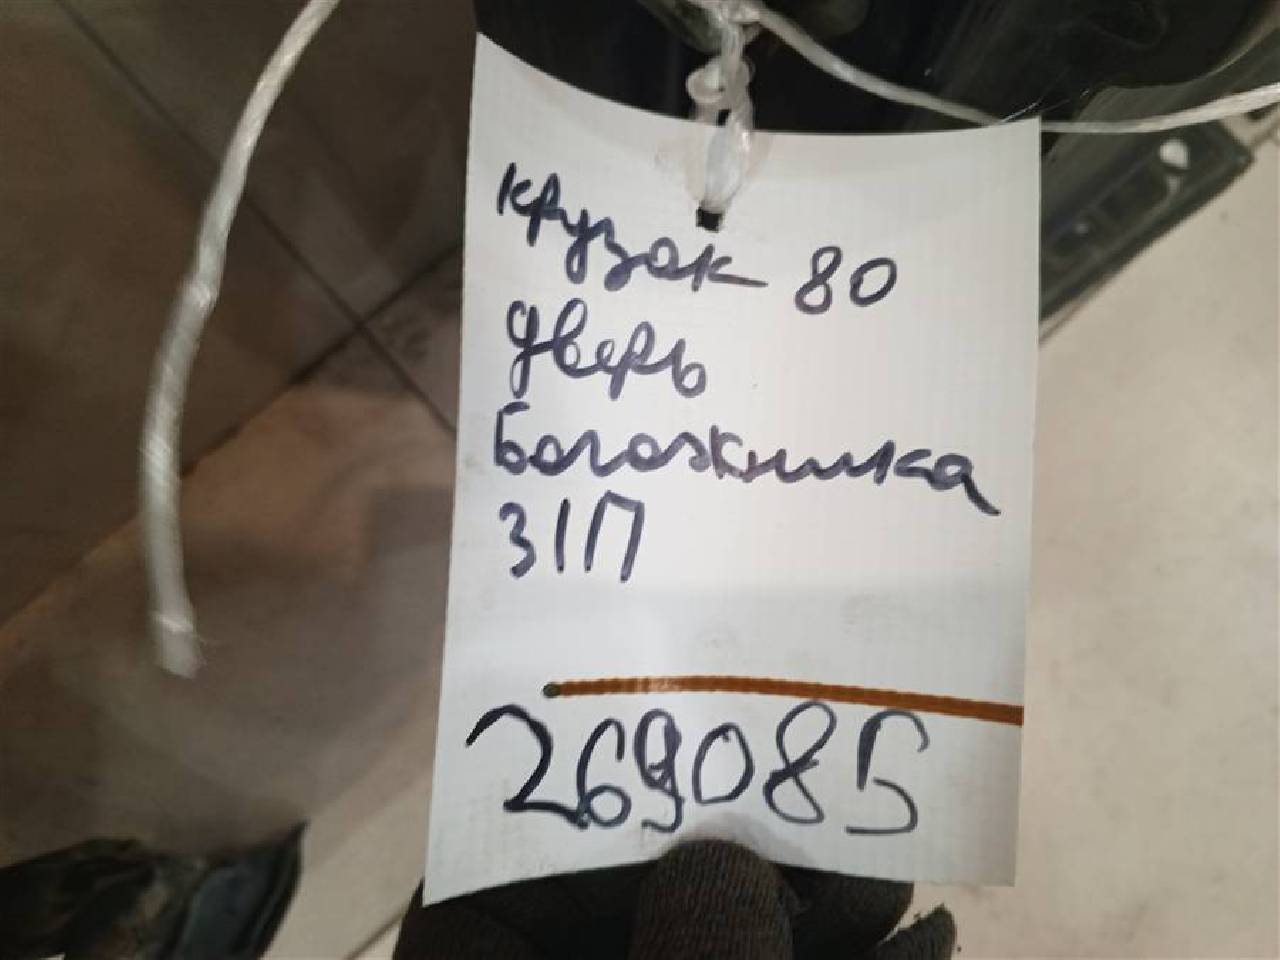 крузак 80
дверь
Богожника
З1П
269085